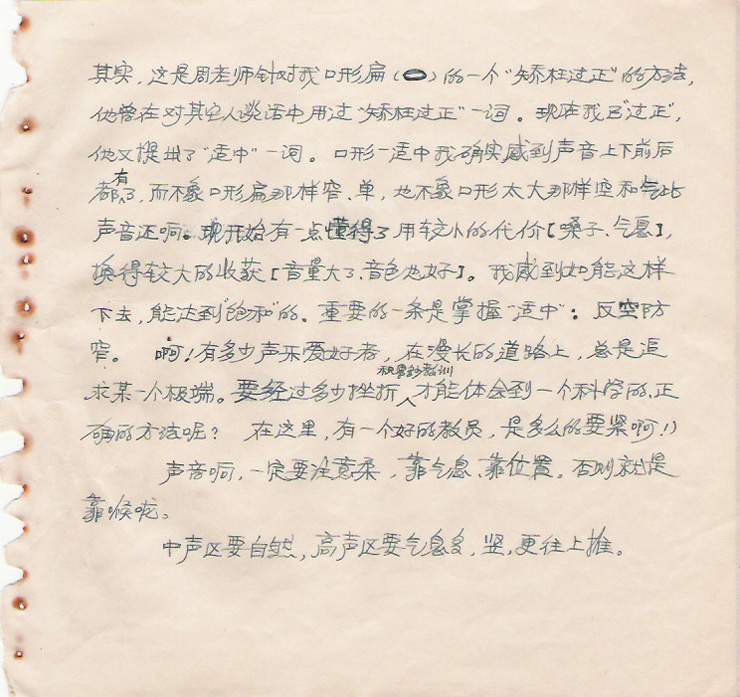 其实，这是周老师针对我口形扁（⬭）的一个“矫枉过正”的方法，
他曾在对其它人谈话中用过“矫枉过正”一词。现在我已“过正”，
他又提出了“适中”一词。口形一适中我确实感到声音上下前后
都有了，而不象口形扁那样窄、单，也不象口形太大那样空和气比
声音还响。现开始有一点懂得了用较小的代价［嗓子、气息］，
换得较大的收获［音量大了、音色也好］。我感到如能这样
下去，能达到“饱和”的。重要的一条是掌握“适中”：反空防
窄。 啊！有多少声乐爱好者，在漫长的道路上，总是追
求某一个极端。要经过多少挫折积累的教训才能体会到一个科学的，正
确的方法呢？ 在这里，有一个好的教员，是多么的要紧啊！）
声音响，一定要注意柔，靠气息、靠位置。否则就是
靠喉咙。
中声区要自然，高声区要气息多，竖，更往上推。